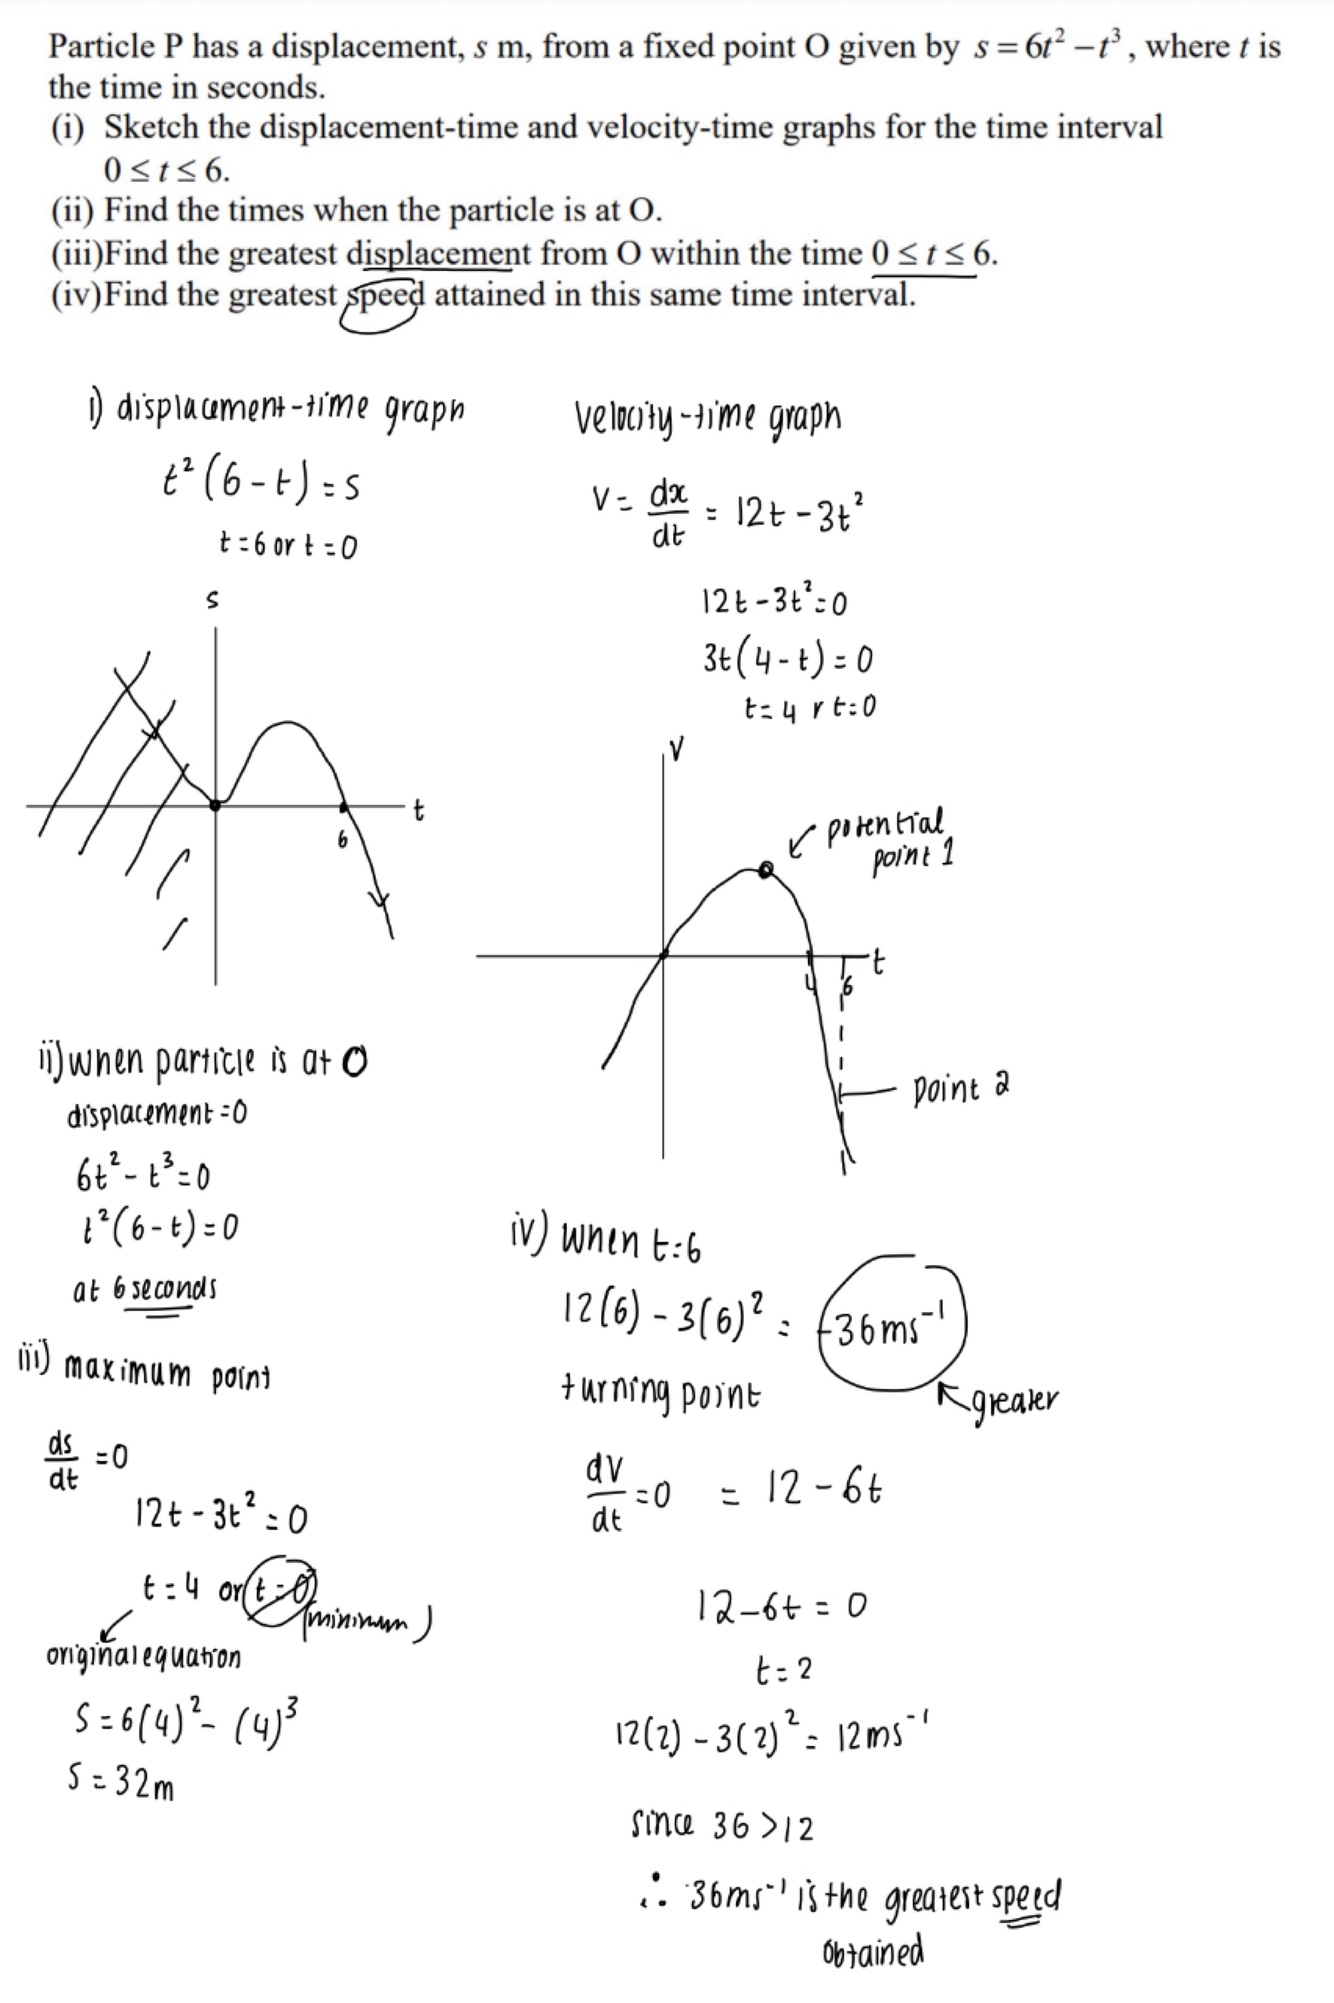 Particle P has a displacement, s m, from a fixed point O given by s = 6t² – t³ , where t is
the time in seconds.
(i) Sketch the displacement-time and velocity-time graphs for the time interval
0 ≤ t ≤ 6.
(ii) Find the times when the particle is at O.
(iii)Find the greatest displacement from O within the time 0 ≤ t ≤ 6.
(iv)Find the greatest speed attained in this same time interval.
i) displacement-time graph
t² (6 - t) = s
t = 6 or t = 0
s
t
6
velocity-time graph
V = dx/dt = 12t - 3t²
12t - 3t² = 0
3t(4 - t) = 0
t = 4 r t = 0
V
potential
point 1
t
4
6
point 2
ii) when particle is at O
displacement = 0
6t² - t³ = 0
t² (6 - t) = 0
at 6 seconds
iii) maximum point
ds/dt = 0
12t - 3t² = 0
t = 4 or t = 0
(minimum)
original equation
S = 6(4)² - (4)³
S = 32m
iv) when t = 6
12(6) - 3(6)² = -36ms⁻¹
greater
turning point
dv/dt = 0 = 12 - 6t
12 - 6t = 0
t = 2
12(2) - 3(2)² = 12ms⁻¹
since 36 > 12
∴ 36ms⁻¹ is the greatest speed
obtained